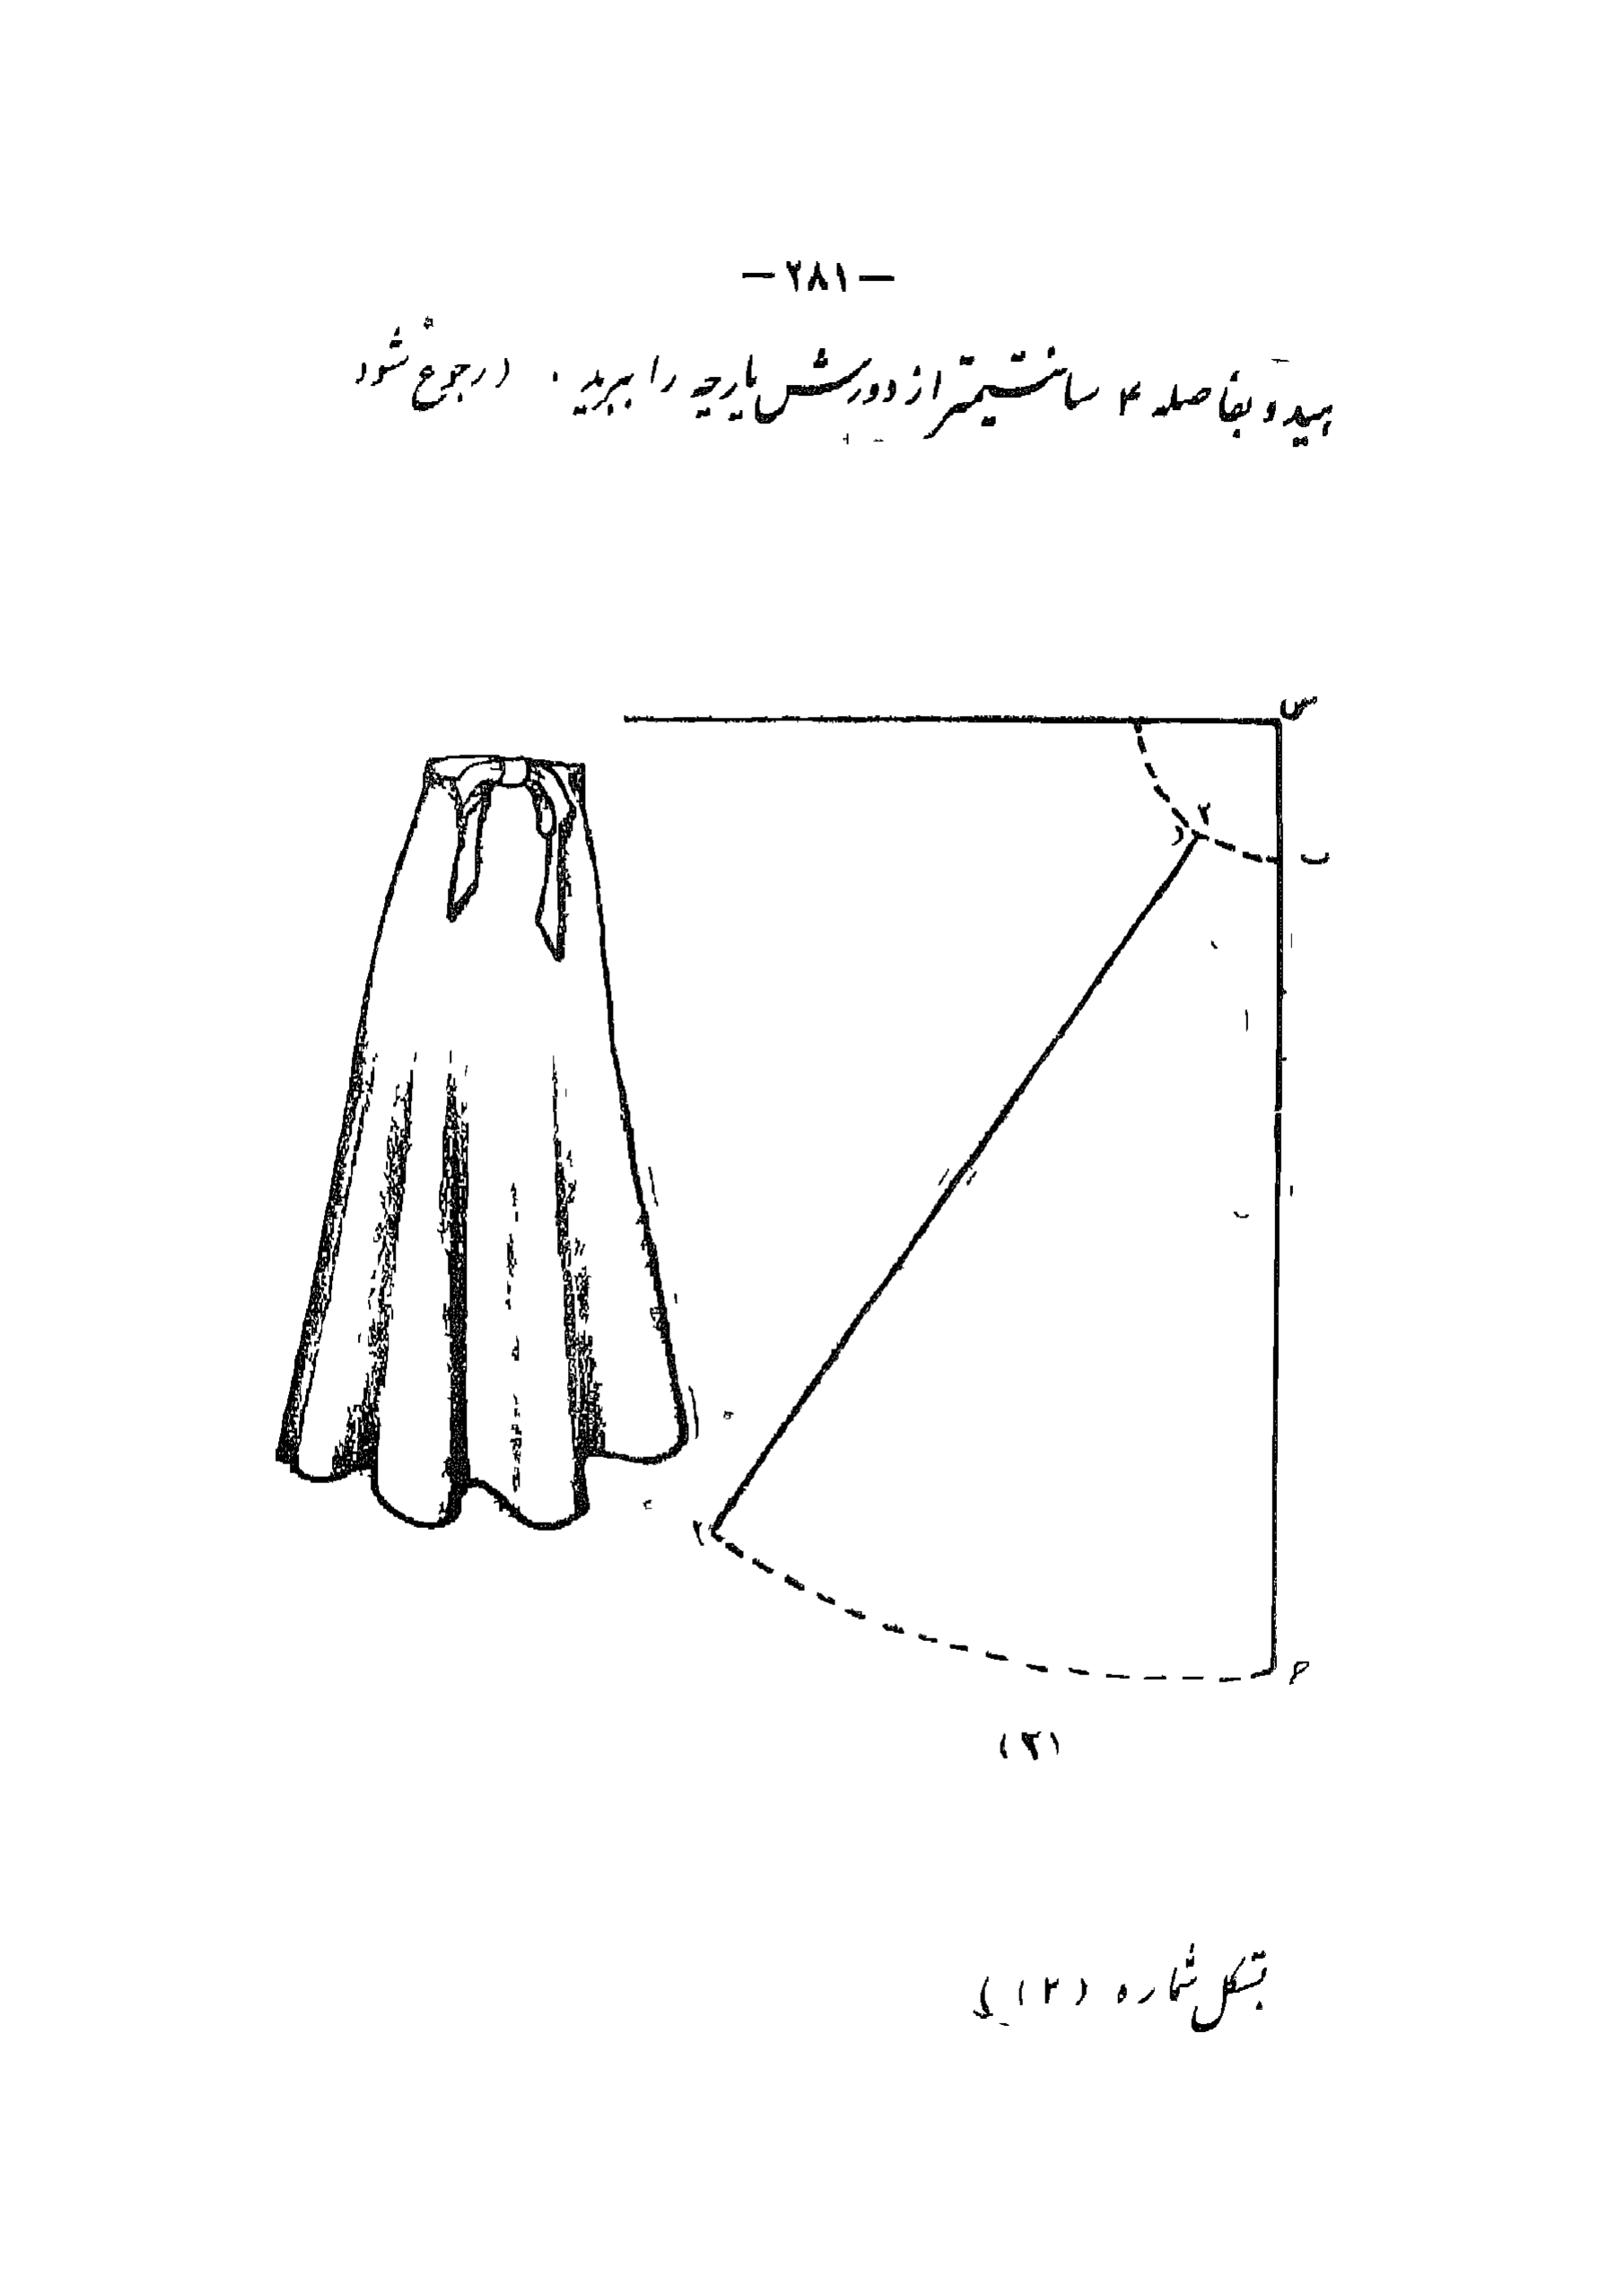 — ۲۸۱ —
ببید و بفاصله ۴ سانتیمتر از دورش پارچه را ببرید . ( رجوع شود
س
۲
ب
۲
م
(۲)
بشکل شماره (۲) )